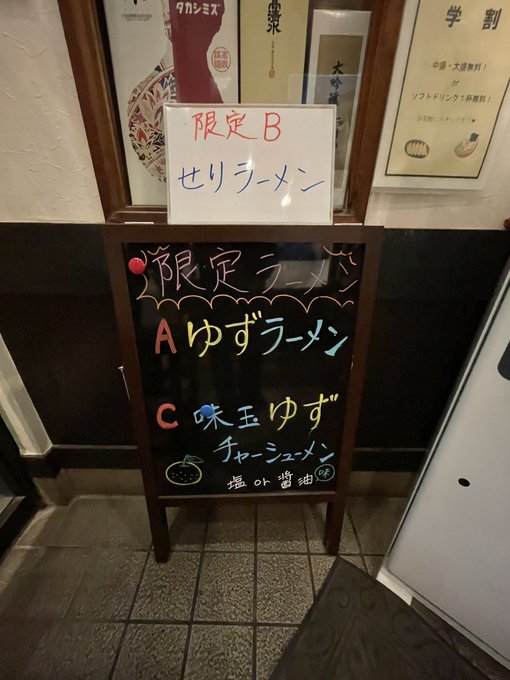 タカシミズ
学割
中盛・大盛無料!
or
ソフトドリンク1杯無料!
限定B
せりラーメン
限定ラーメン
Aゆずラーメン
C 味玉ゆず
チャーシューメン
塩 or 醤油 味